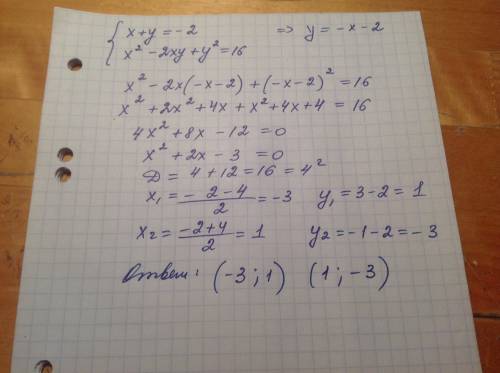 { x + y = -2 => y = -x - 2
x² - 2xy + y² = 16
x² - 2x(-x-2) + (-x-2)² = 16
x² + 2x² + 4x + x² + 4x + 4 = 16
4x² + 8x - 12 = 0
x² + 2x - 3 = 0
D = 4 + 12 = 16 = 4²
x₁ = (-2-4)/2 = -3 y₁ = 3 - 2 = 1
x₂ = (-2+4)/2 = 1 y₂ = -1 - 2 = -3
Ответ: (-3 ; 1) (1 ; -3)